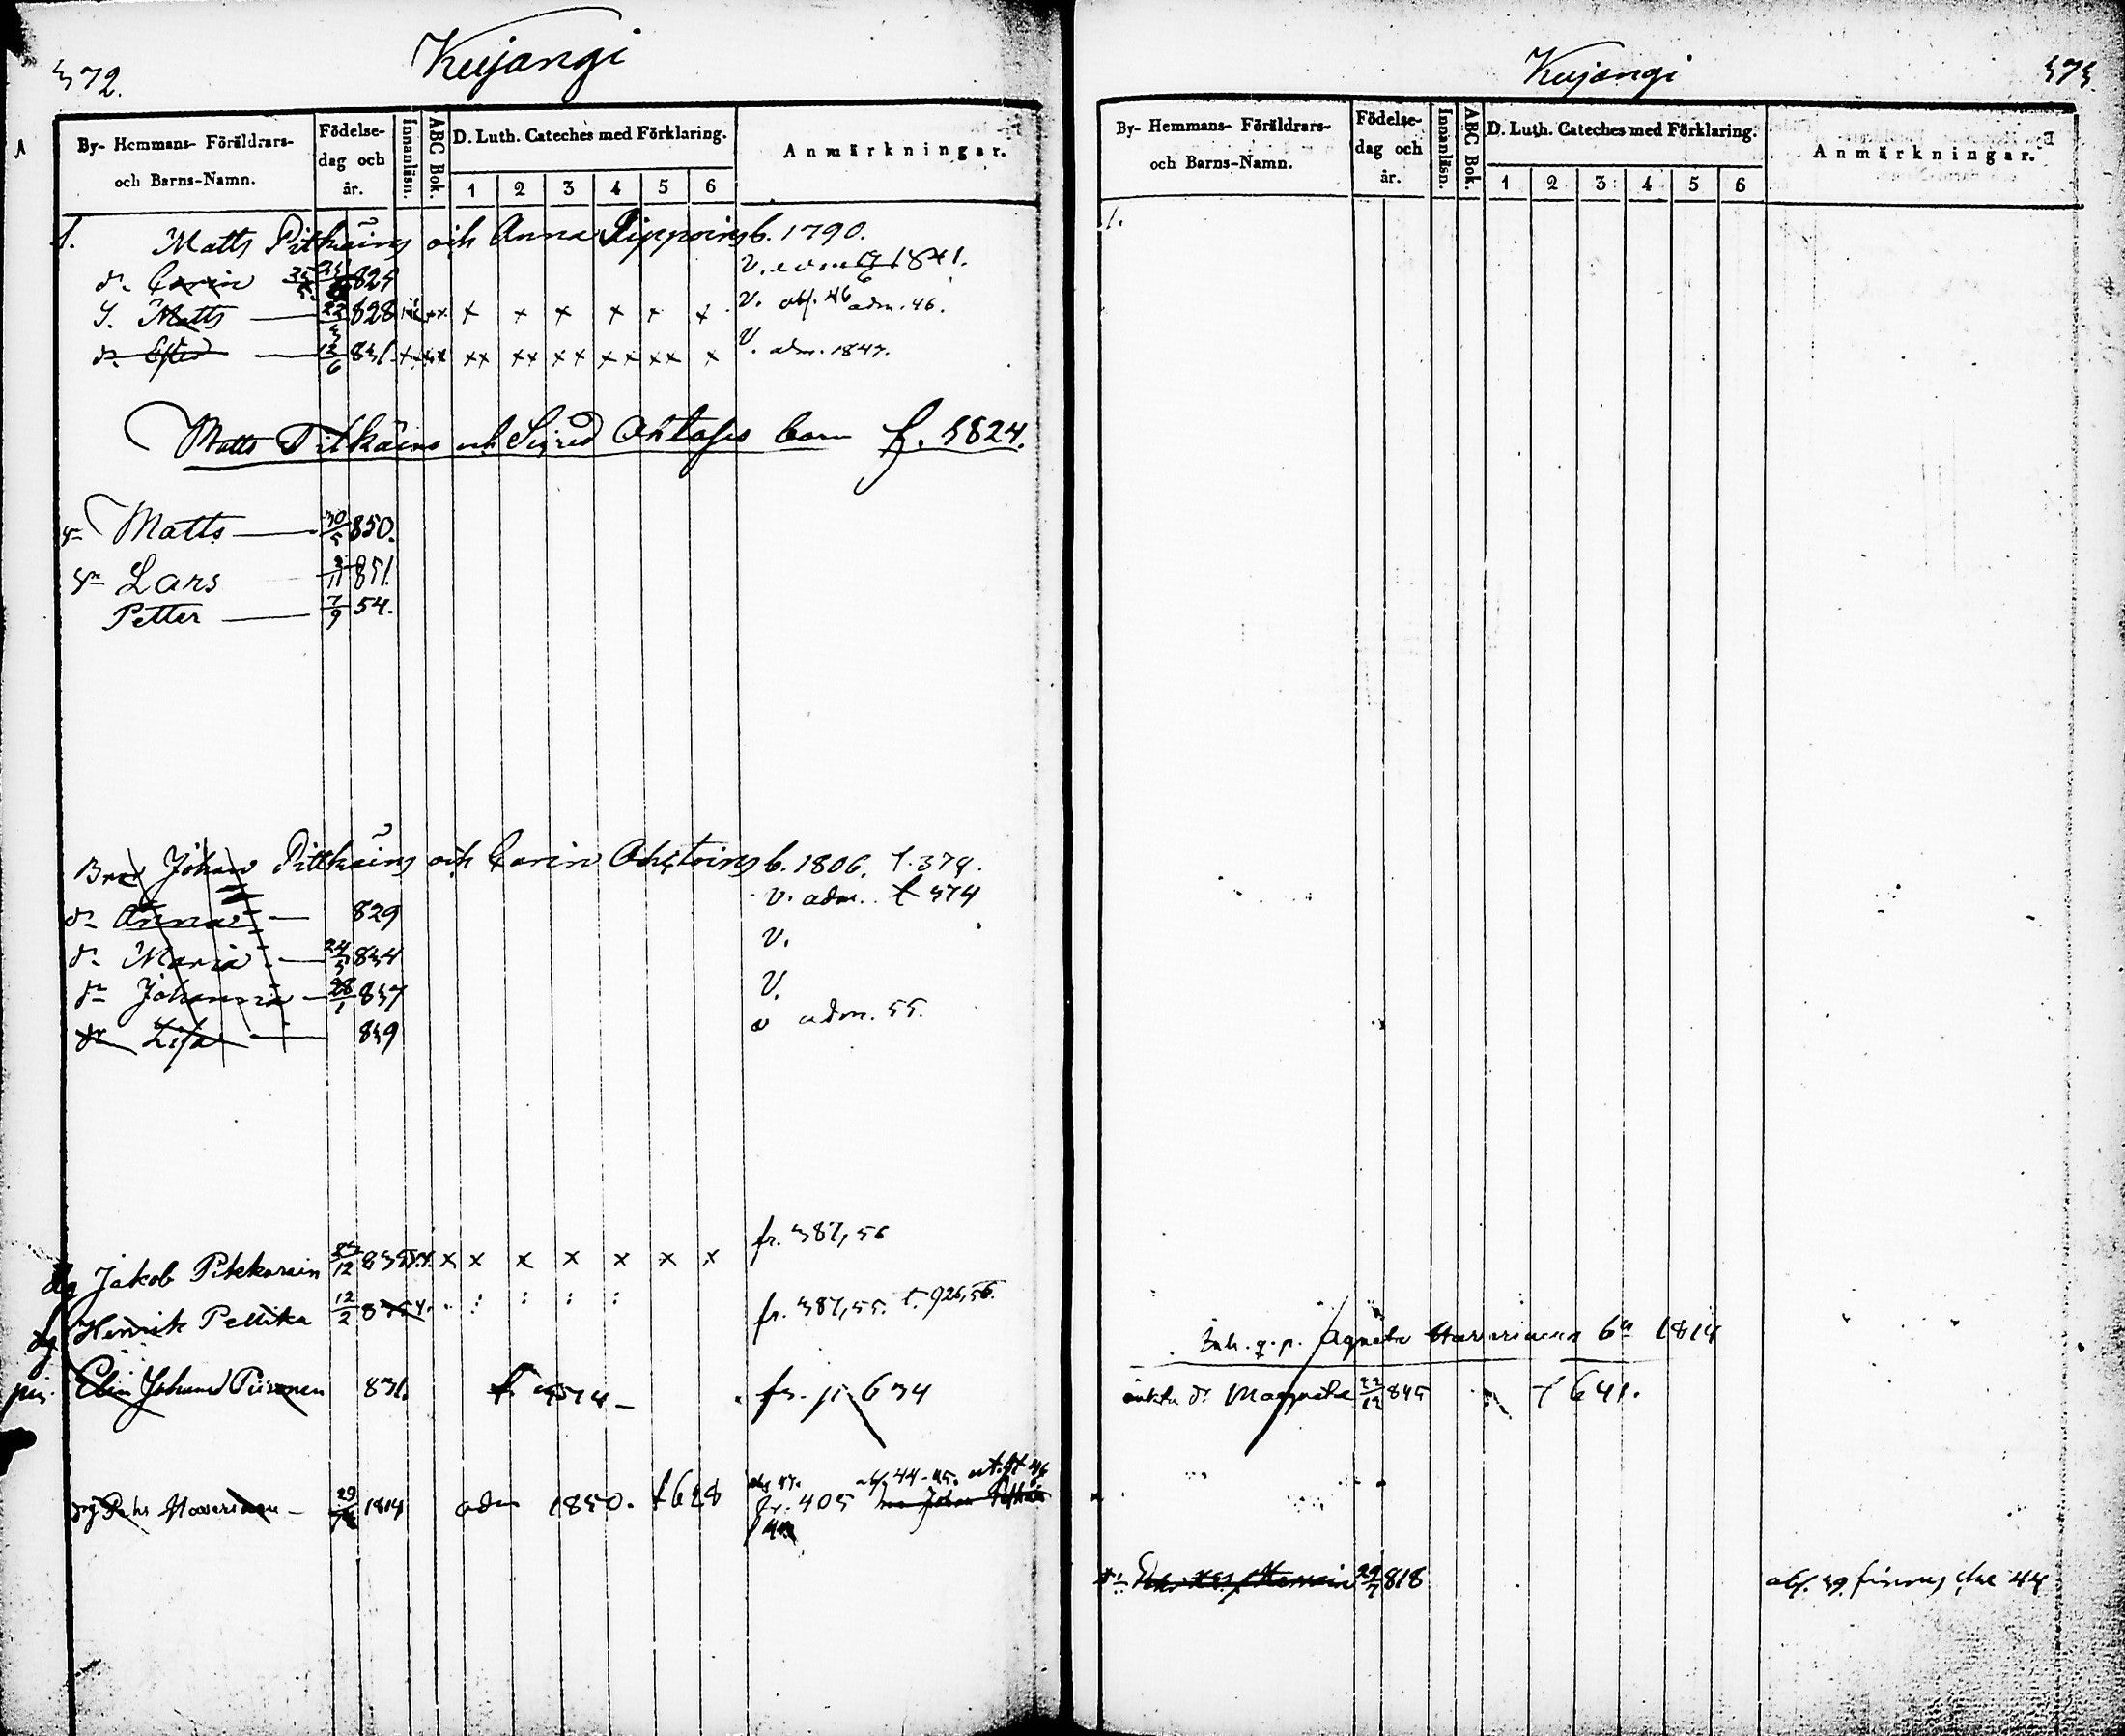 372.
Kujangi
By- Hemmans- Föräldrars- och Barns-Namn.
Födelse-dag och år.
Innanläsn.
ABC Bok.
D. Luth. Cateches med Förklaring.
1 2 3 4 5 6
Anmärkningar.
1. Matts Pitkäins och Anna Pippoins b. 1790.
dr Carin 824 V. 1841.
S. Matts 22 828 x x x x x x V. abs. 46 adm. 46.
dr Ester 12/6 831 xx xx xx xx xx x V. adm. 1847.
Matts Pitkäins och Sigrid Ahtosis barn f. 1824.
Matts 30/5 850.
Lars 2/11 851.
Petter 7/9 54.
Johan Pitkäins och Carin Ahtoins b. 1806. t. 379.
dr Anna 829 v. adm. t 374
dr Maria 24/3 834 V.
dr Johanna 28/1 837 V.
dr Lisa 839 v adm. 55.
dg Jakob Pikkarain 12 835 x x x x x x x fr. 387, 56
dg Henrik Pellika 12/2 8 : : : : fr. 387, 55. t. 926, 56.
pig. Elin Johansd Piironen 831. fr. p 634
drg Pehr Haverinen 29 1819 adm 1850. t 628 fr. 405
Kujangi
373.
By- Hemmans- Föräldrars- och Barns-Namn.
Födelse-dag och år.
Innanläsn.
ABC Bok.
D. Luth. Cateches med Förklaring.
1 2 3 4 5 6
Anmärkningar.
1.
Inh. q. p. Agneta Haverinens bn 1814
oäkta dr Margreta 22/12 845 t 641.
29/7 818 abs. 39. finnes 44